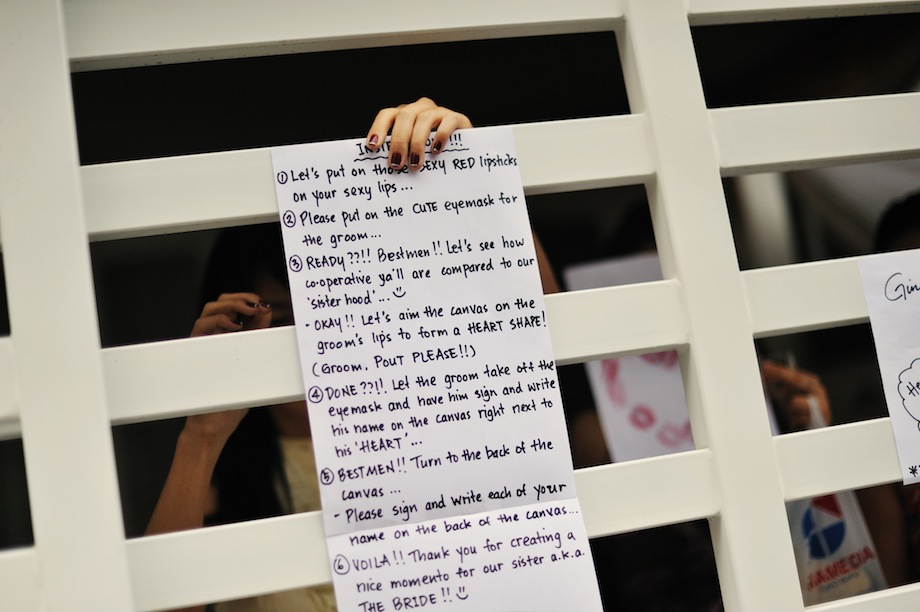 !!!
① Let's put on those SEXY RED lipsticks
on your sexy lips...
② Please put on the CUTE eyemask for
the groom...
③ READY??!! Bestmen!! Let's see how
co-operative ya'll are compared to our
'sister hood'... ☺
- OKAY!! Let's aim the canvas on the
groom's lips to form a HEART SHAPE!
(GROOM, POUT PLEASE!!)
④ DONE??!! Let the groom take off the
eyemask and have him sign and write
his name on the canvas right next to
his 'HEART'...
⑤ BESTMEN!! Turn to the back of the
canvas...
- Please sign and write each of your
name on the back of the canvas...
⑥ VOILA!! Thank you for creating a
nice momento for our sister a.k.a.
THE BRIDE!! ☺